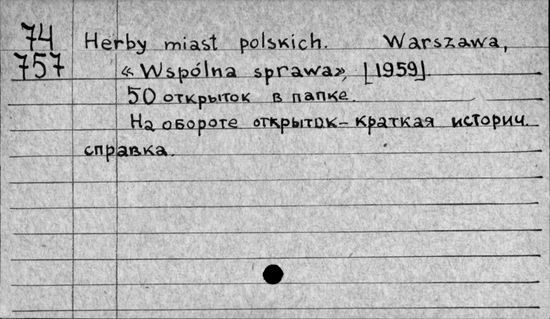 74 Herby miast polskich. Warszawa,
757 «Wspólna sprawa», [1959].
50 открыток в папке.
На обороте открыток-краткая историч.
справка.